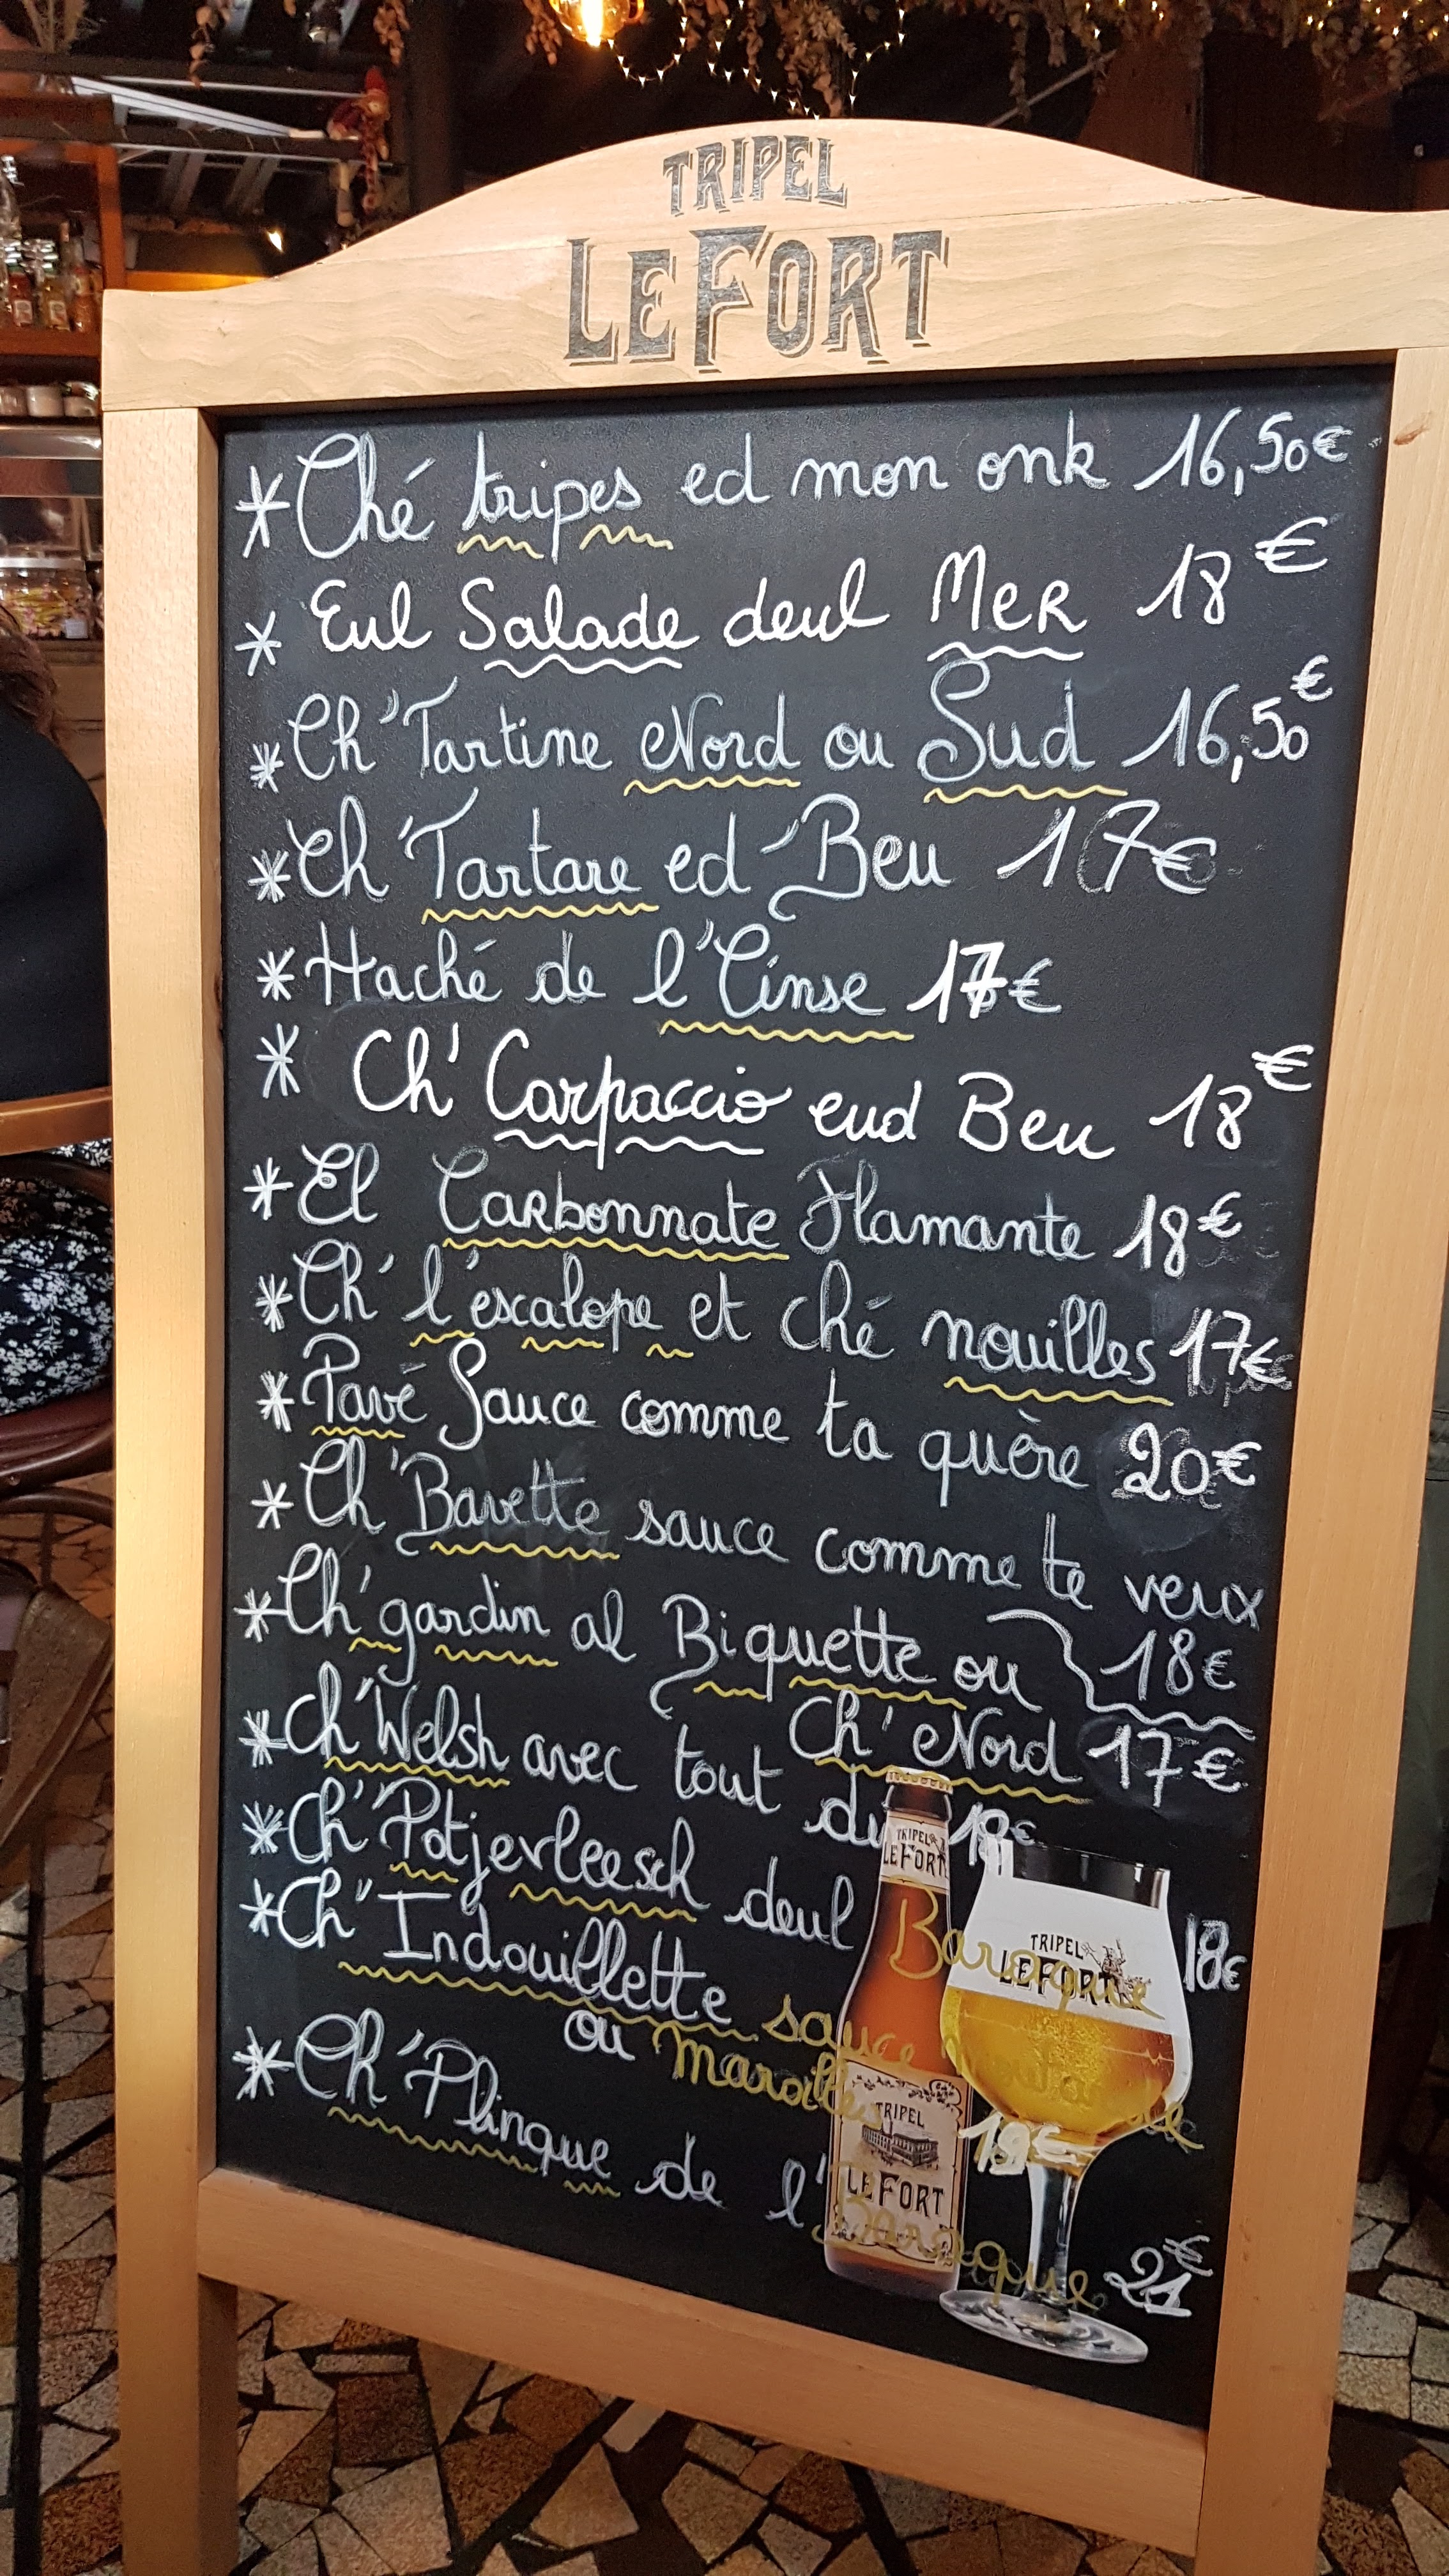 TRIPEL
LEFORT
* Ché tripes ed mon onk 16,50€
* Eul Salade deul MeR 18€
* Ch'Tartine Nord ou Sud 16,50€
* Ch'Tartare ed Beu 17€
* Haché de l'Cinse 17€
* Ch' Carpaccio eud Beu 18€
* El Carbonnate Flamante 18€
* Ch' l'escalope et ché nouilles 17€
* Pavé Sauce comme ta quère 20€
* Ch'Bavette sauce comme te veux
18€
* Ch'gardin al Biquette ou
Ch' Nord 17€
* Ch'Welsh avec tout du 18€
* Ch'Potjevleesch deul Baraque 18€
* Ch'Indouillette sauce moutarde
ou Maroilles 18€
* Ch'Plinque de l'Baraque 21€
TRIPEL
LEFORT
TRIPEL
LEFORT
TRIPEL
LEFORT